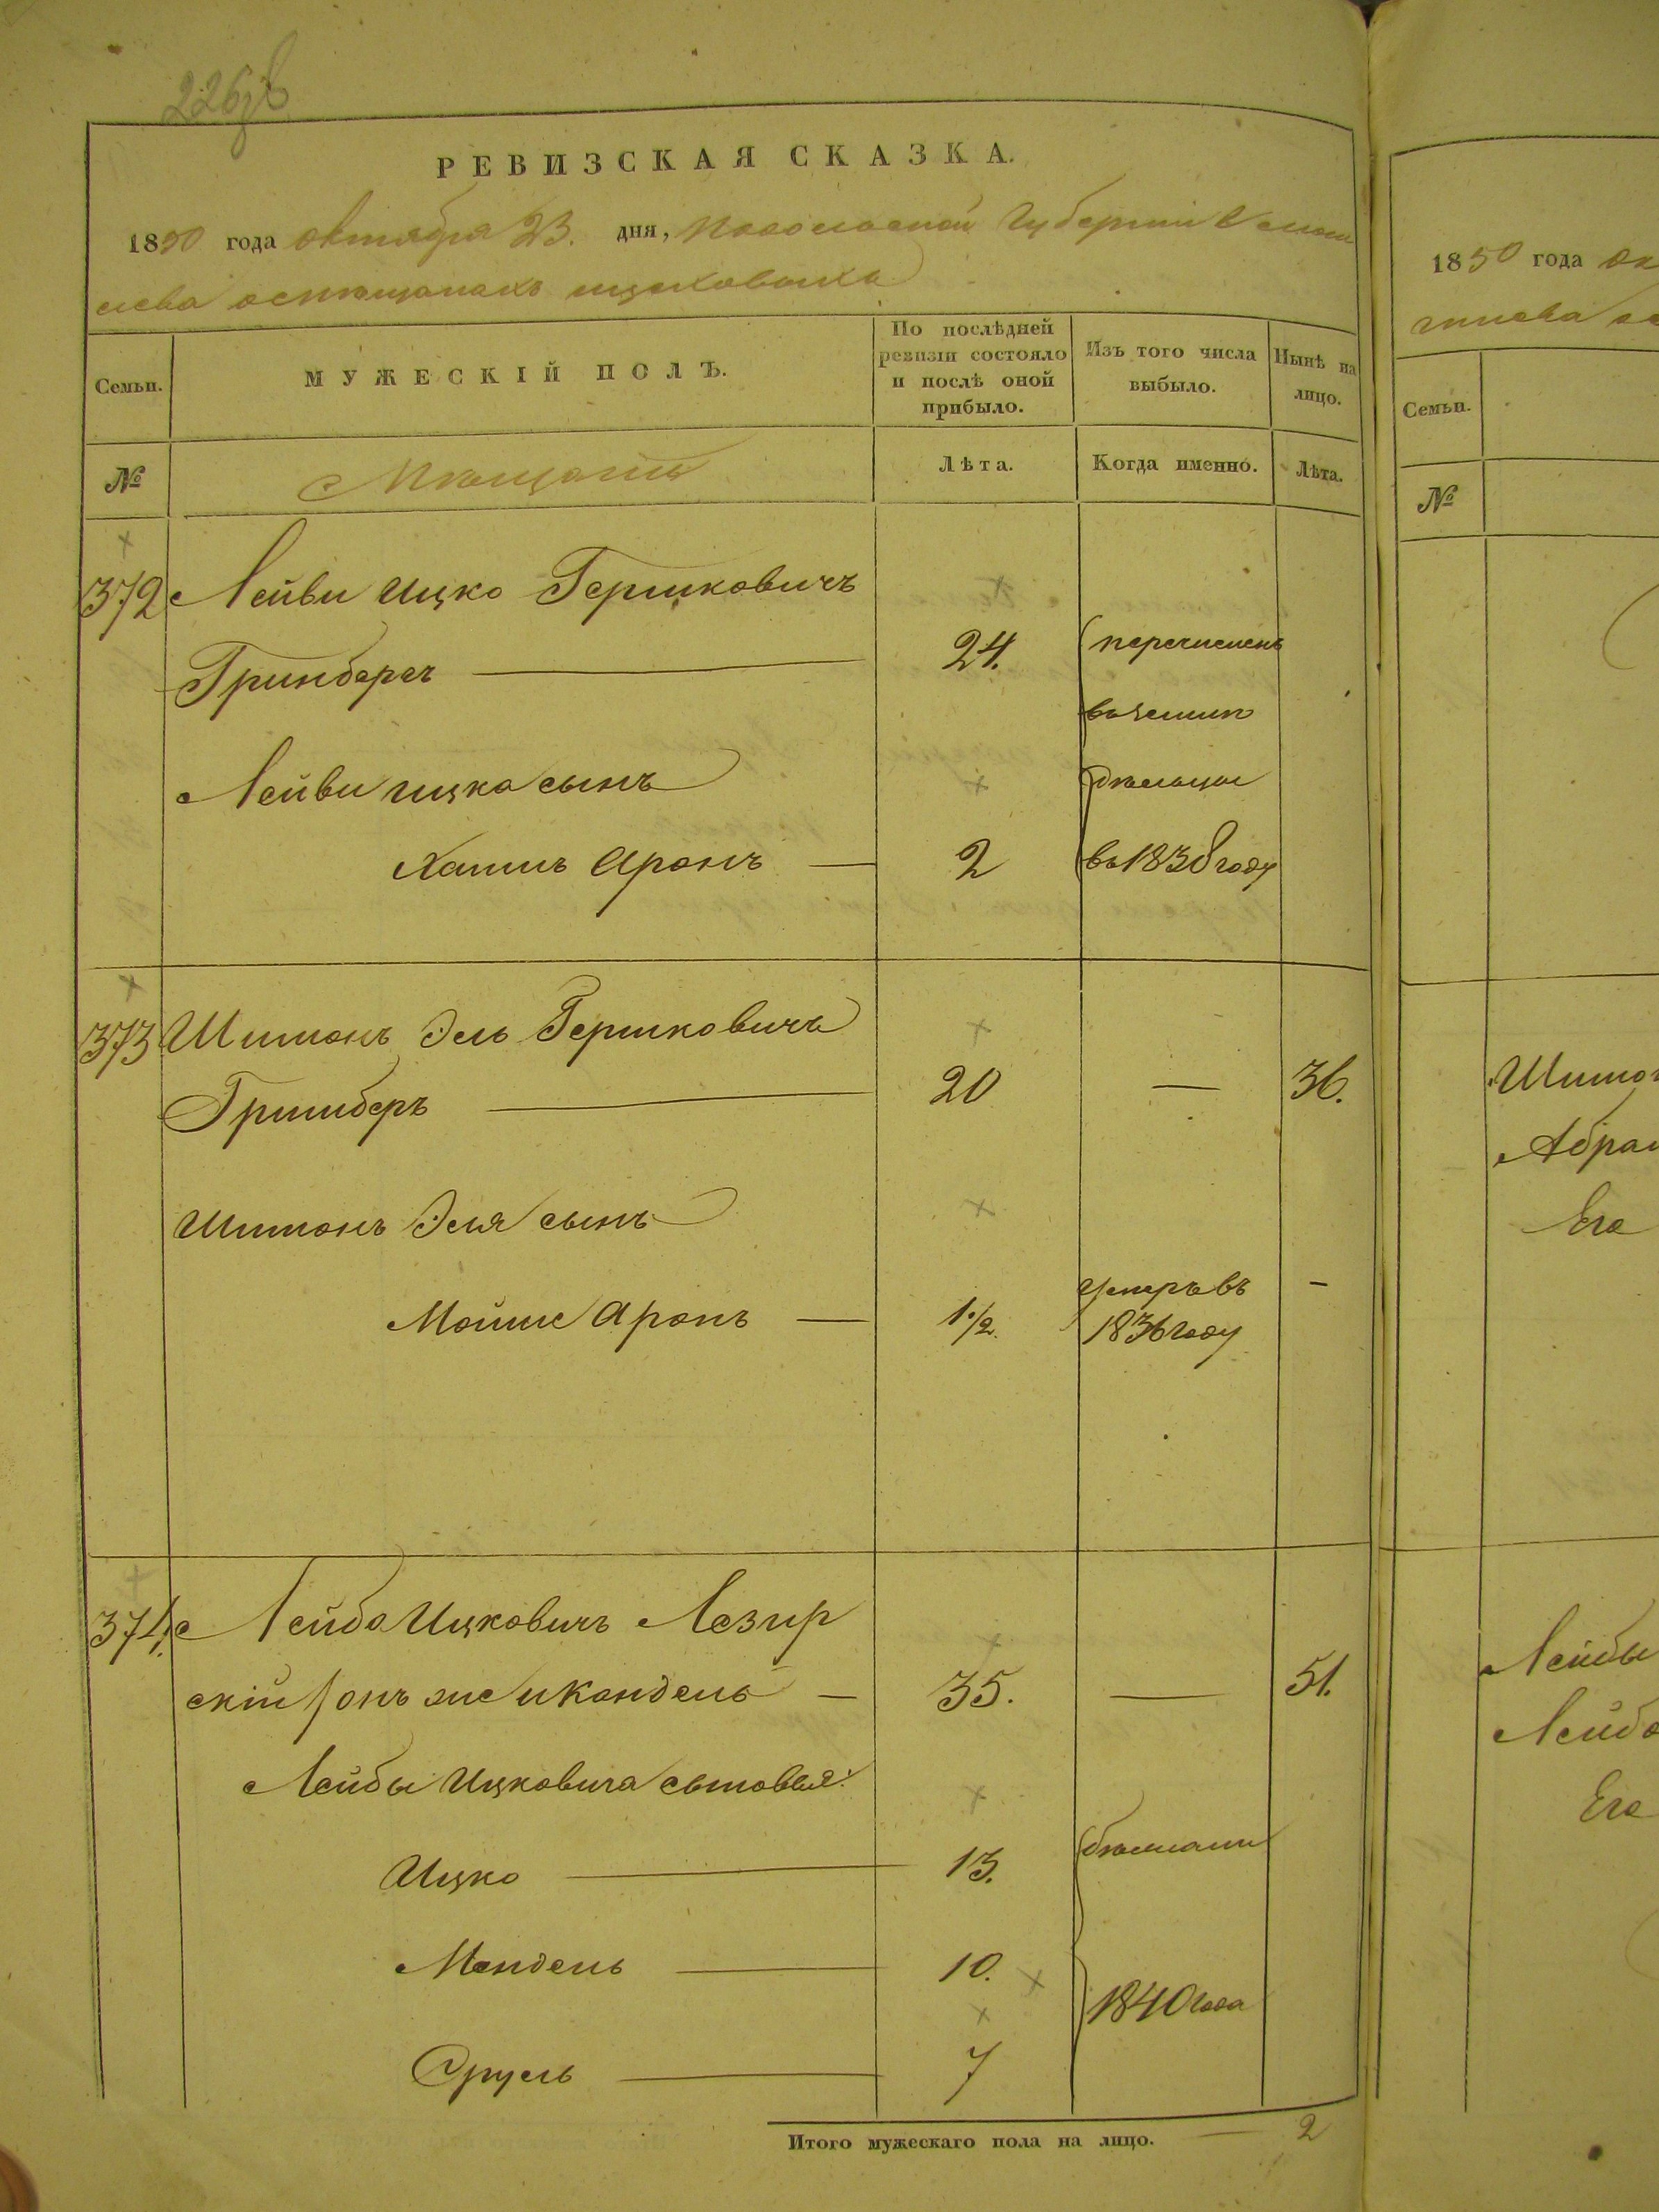 226
РЕВИЗСКАЯ СКАЗКА.
1850 года октября 23. дня, Подольской Губернии
мещанахъ
Семьи.
МУЖЕСКІЙ ПОЛЪ.
По послѣдней ревизіи состояло и послѣ оной прибыло.
Изъ того числа выбыло.
Нынѣ на лицо.
№
Мѣщане
Лѣта.
Когда именно.
Лѣта.
372 Лейви Ицко Гершковичъ
Гринберг 24. перечисленъ
въ земле
Лейви ицка сынъ дѣльцы
Хаимъ Аронъ 2 въ 1838 году
373 Шимонъ Эль Гершковичъ
Гринберъ 20 — 36.
Шимонъ Эля сынъ
Мойше Аронъ — 1/2. умеръ въ 1836 году —
374. Лейба Ицковичъ Лезир
скій онъ же и Кандель — 35. — 51.
Лейбы Ицковича сыновья:
Ицко 13. бѣжали
Мендель 10. 1840 года
Сруль 7
Итого мужескаго пола на лицо. — 2
1850 года ок
Семьи.
№
Шимо
Абрам
Его
Лейбы
Лейба
Его